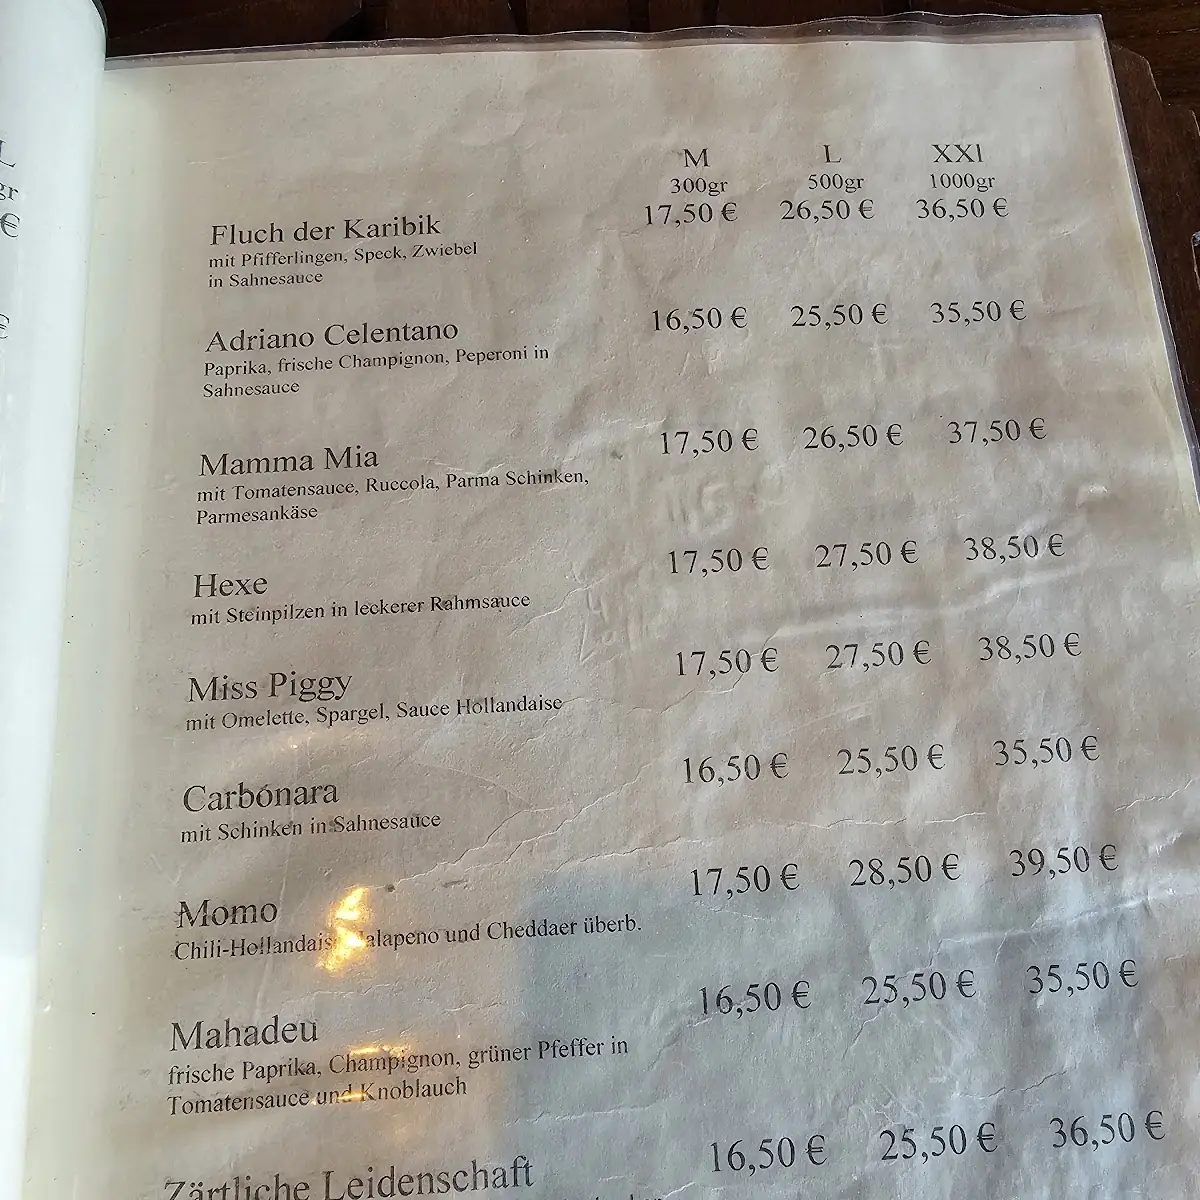 L
gr
€
€
M L XXl
300gr 500gr 1000gr
Fluch der Karibik 17,50 € 26,50 € 36,50 €
mit Pfifferlingen, Speck, Zwiebel
in Sahnesauce
Adriano Celentano 16,50 € 25,50 € 35,50 €
Paprika, frische Champignon, Peperoni in
Sahnesauce
Mamma Mia 17,50 € 26,50 € 37,50 €
mit Tomatensauce, Ruccola, Parma Schinken,
Parmesankäse
Hexe 17,50 € 27,50 € 38,50 €
mit Steinpilzen in leckerer Rahmsauce
Miss Piggy 17,50 € 27,50 € 38,50 €
mit Omelette, Spargel, Sauce Hollandaise
Carbonara 16,50 € 25,50 € 35,50 €
mit Schinken in Sahnesauce
Momo 17,50 € 28,50 € 39,50 €
Chili-Hollandaise, Jalapeno und Cheddaer überb.
Mahadeu 16,50 € 25,50 € 35,50 €
frische Paprika, Champignon, grüner Pfeffer in
Tomatensauce und Knoblauch
Zärtliche Leidenschaft 16,50 € 25,50 € 36,50 €